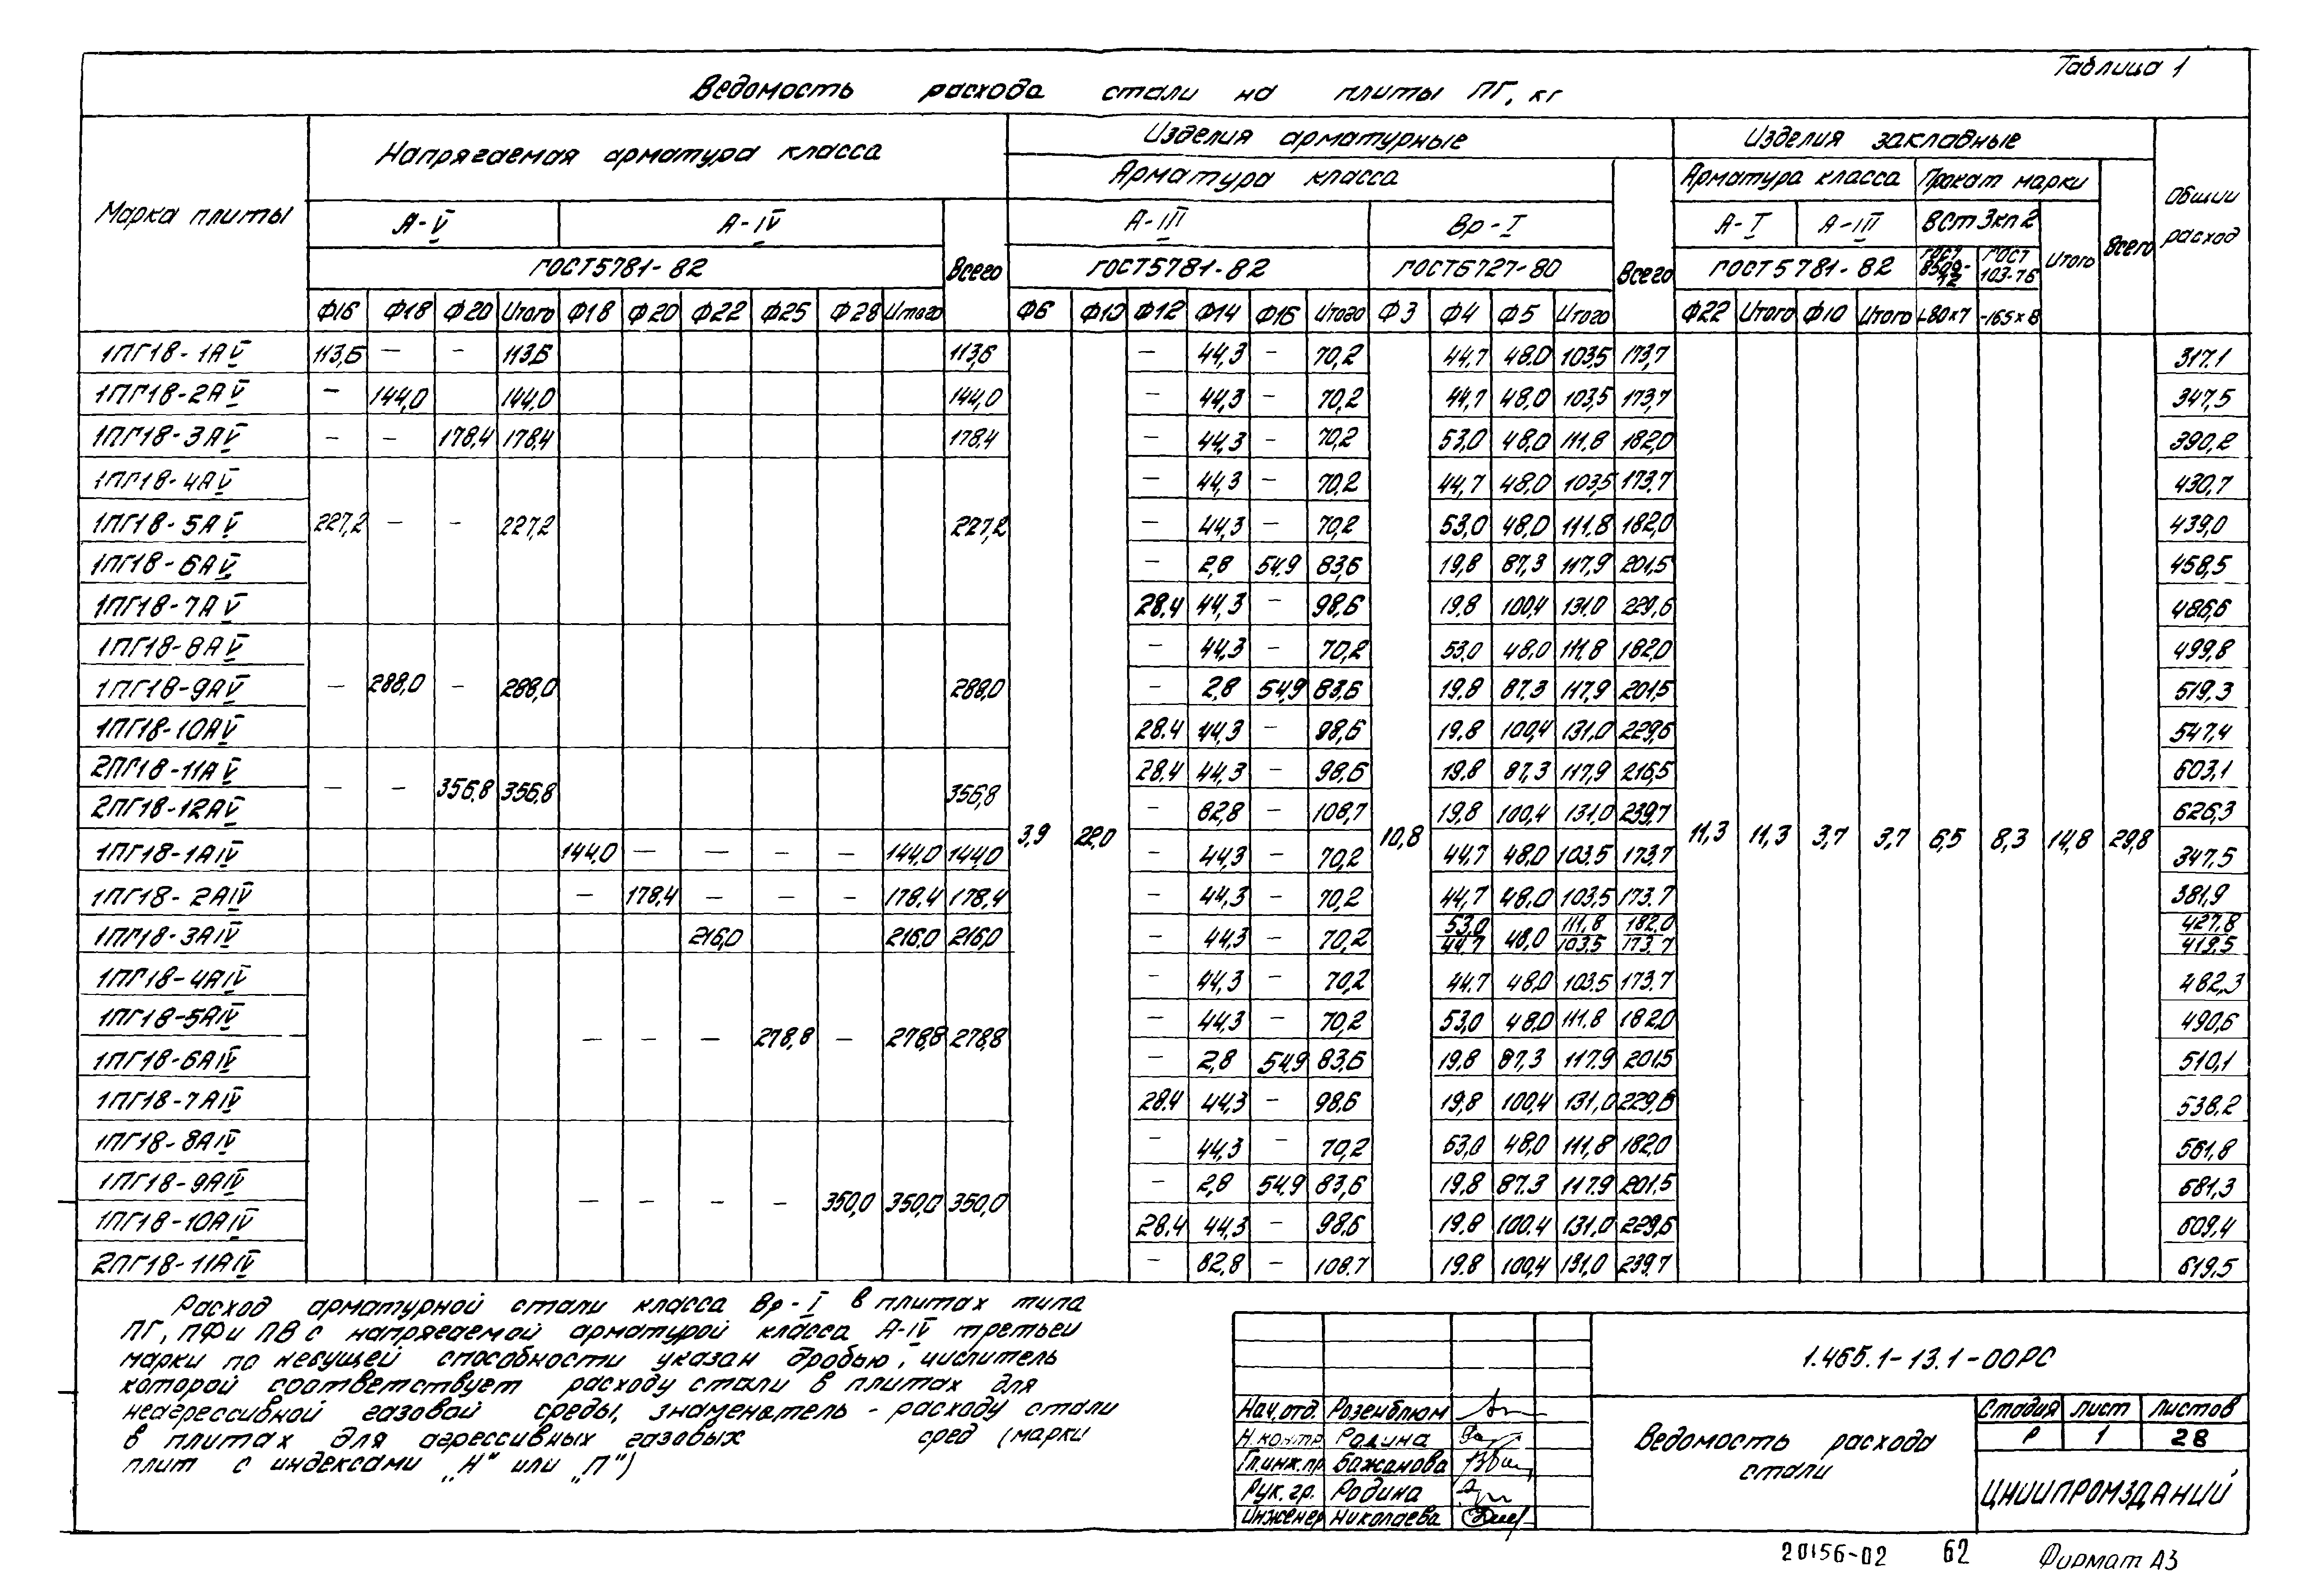 Таблица 1
Ведомость расхода стали на плиты ПГ, кг
Марка плиты
Напрягаемая арматура класса
Изделия арматурные
Изделия закладные
Общий расход
Арматура класса
Арматура класса
Прокат марки
А-V
А-IV
Всего
А-III
Вр-I
Всего
А-I
А-III
ВСт3кп2
Итого
Всего
ГОСТ5781-82
ГОСТ5781-82
ГОСТ6727-80
ГОСТ5781-82
ГОСТ 8509-72
ГОСТ 103-76
Ф16 Ф18 Ф20 Итого Ф18 Ф20 Ф22 Ф25 Ф28 Итого Ф6 Ф10 Ф12 Ф14 Ф16 Итого Ф3 Ф4 Ф5 Итого Ф22 Итого Ф10 Итого 80×7 -165×8
1ПГ18-1АV 113,6 — — 113,6 113,6 — 44,3 — 70,2 44,7 48,0 103,5 173,7 317.1
1ПГ18-2АV — 144,0 144,0 144,0 — 44,3 — 70,2 44,7 48,0 103,5 173,7 347,5
1ПГ18-3АV — — 178,4 178,4 178,4 — 44,3 — 70,2 53,0 48,0 111.8 182,0 390,2
1ПГ18-4АV — 44,3 — 70,2 44,7 48,0 103,5 173,7 430,7
1ПГ18-5АV 227,2 — — 227,2 227,2 — 44,3 — 70,2 53,0 48,0 111.8 182,0 439,0
1ПГ18-6АV — 2,8 54,9 83,6 19,8 87,3 117,9 201,5 458,5
1ПГ18-7АV 28.4 44,3 — 98,6 19,8 100,4 131,0 229,6 486,6
1ПГ18-8АV — 44,3 — 70,2 53,0 48,0 111,8 182,0 499,8
1ПГ18-9АV — 288,0 — 288,0 288,0 — 2,8 54,9 83,6 19,8 87.3 117,9 201,5 519,3
1ПГ18-10АV 28.4 44,3 — 98,6 19.8 100,4 131,0 229,6 547,4
2ПГ18-11АV 28,4 44,3 — 98,6 19,8 87,3 117,9 216,5 603,1
— — 356,8 356,8 356,8
2ПГ18-12АV — 82,8 — 108,7 19,8 100,4 131,0 239,7 626,3
3,9 22,0 10,8 11,3 11,3 3,7 3,7 6,5 8,3 14,8 29,8
1ПГ18-1АIV 144,0 — — — — 144,0 144,0 — 44,3 — 70,2 44,7 48,0 103.5 173,7 347,5
1ПГ18-2АIV — 178,4 — — — 178,4 178,4 — 44,3 — 70,2 44,7 48,0 103,5 173.7 381,9
1ПГ18-3АIV 216,0 216,0 216,0 — 44,3 — 70,2 53,0/44,7 48,0 111,8/103,5 182,0/173.7 427,8/419,5
1ПГ18-4АIV — 44,3 — 70,2 44.7 48,0 103.5 173.7 482,3
1ПГ18-5АIV — 44,3 — 70,2 53,0 48,0 111.8 182,0 490,6
— — — 278,8 — 278,8 278,8
1ПГ18-6АIV — 2,8 54,9 83,6 19,8 87,3 117.9 201,5 510,1
1ПГ18-7АIV 28.4 44,3 — 98,6 19,8 100,4 131,0 229,6 538,2
1ПГ18-8АIV — 44,3 — 70,2 53,0 48,0 111,8 182,0 561,8
1ПГ18-9АIV — 2,8 54,9 83,6 19.8 87.3 117.9 201,5 581,3
— — — — 350,0 350,0 350,0
1ПГ18-10АIV 28.4 44,3 — 98,6 19.8 100.4 131,0 229,6 609,4
2ПГ18-11АIV — 82,8 — 108.7 19.8 100,4 131,0 239.7 619,5
Расход арматурной стали класса Вр-I в плитах типа
ПГ, ПФ и ПВ с напрягаемой арматурой класса А-IV третьей
марки по несущей способности указан дробью, числитель
которой соответствует расходу стали в плитах для
неагрессивной газовой среды, знаменатель - расходу стали
в плитах для агрессивных газовых сред (марки
плит с индексами „Н" или „П")
1.465.1-13.1-00РС
Нач.отд. Розенблюм
Н.контр. Родина
Гл.инж.пр Бажанова
Рук.гр. Родина
Инженер Николаева
Ведомость расхода стали
Стадия Лист Листов
Р 1 28
ЦНИИПРОМЗДАНИЙ
20156-02 62 Формат А3